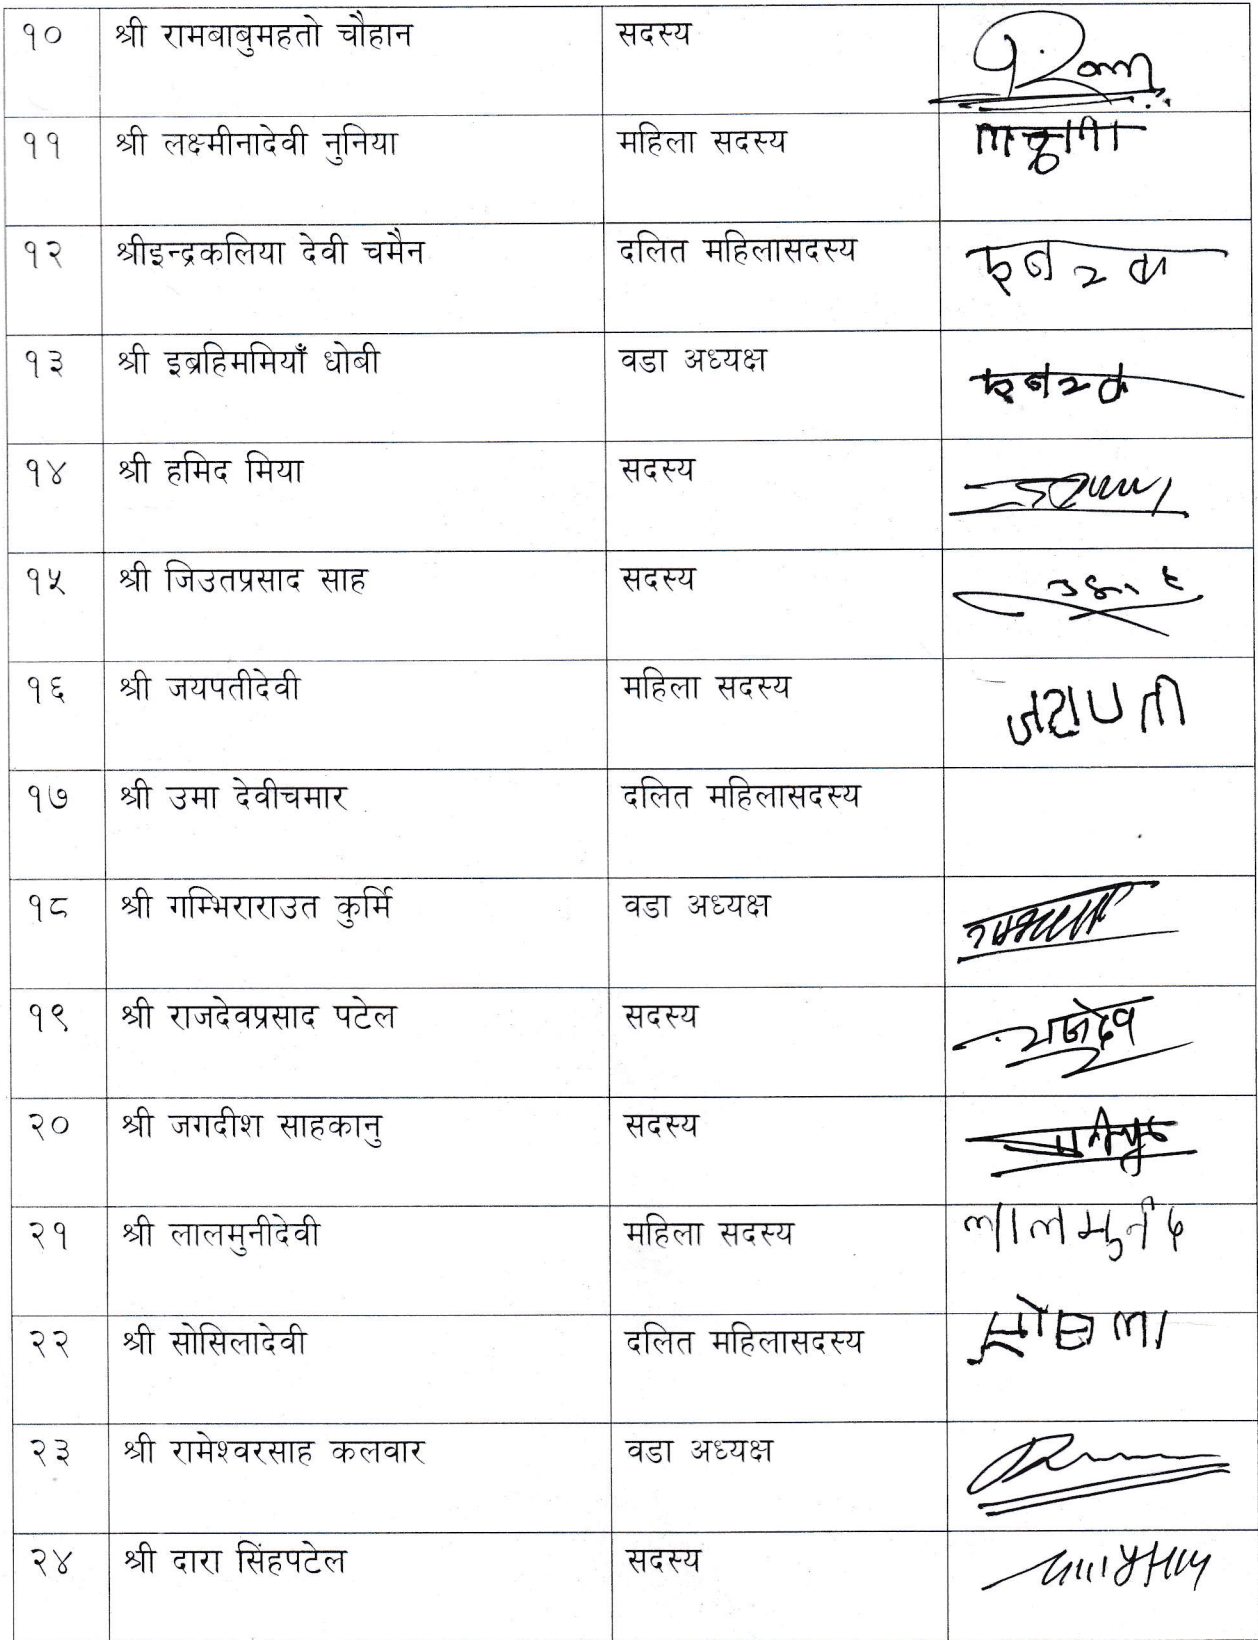 १० श्री रामबाबुमहतो चौहान सदस्य Ram
११ श्री लक्ष्मीनादेवी नुनिया महिला सदस्य
१२ श्रीइन्द्रकलिया देवी चमैन दलित महिलासदस्य
१३ श्री इब्रहिममियाँ धोबी वडा अध्यक्ष
१४ श्री हमिद मिया सदस्य
१५ श्री जिउतप्रसाद साह सदस्य
१६ श्री जयपतीदेवी महिला सदस्य जयपती
१७ श्री उमा देवीचमार दलित महिलासदस्य
१८ श्री गम्भिराराउत कुर्मि वडा अध्यक्ष
१९ श्री राजदेवप्रसाद पटेल सदस्य राजदेव
२० श्री जगदीश साहकानु सदस्य
२१ श्री लालमुनीदेवी महिला सदस्य
२२ श्री सोसिलादेवी दलित महिलासदस्य
२३ श्री रामेश्वरसाह कलवार वडा अध्यक्ष
२४ श्री दारा सिंहपटेल सदस्य